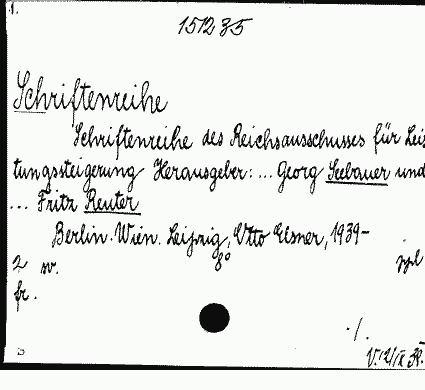 1.
151235
Schriftenreihe
Schriftenreihe des Reichsausschusses für Leis
tungssteigerung Herausgeber: ... Georg Seebauer und
... Fritz Reuter
Berlin. Wien. Leipzig, Otto Elsner, 1939-
2 w. 8°
fr.
./.